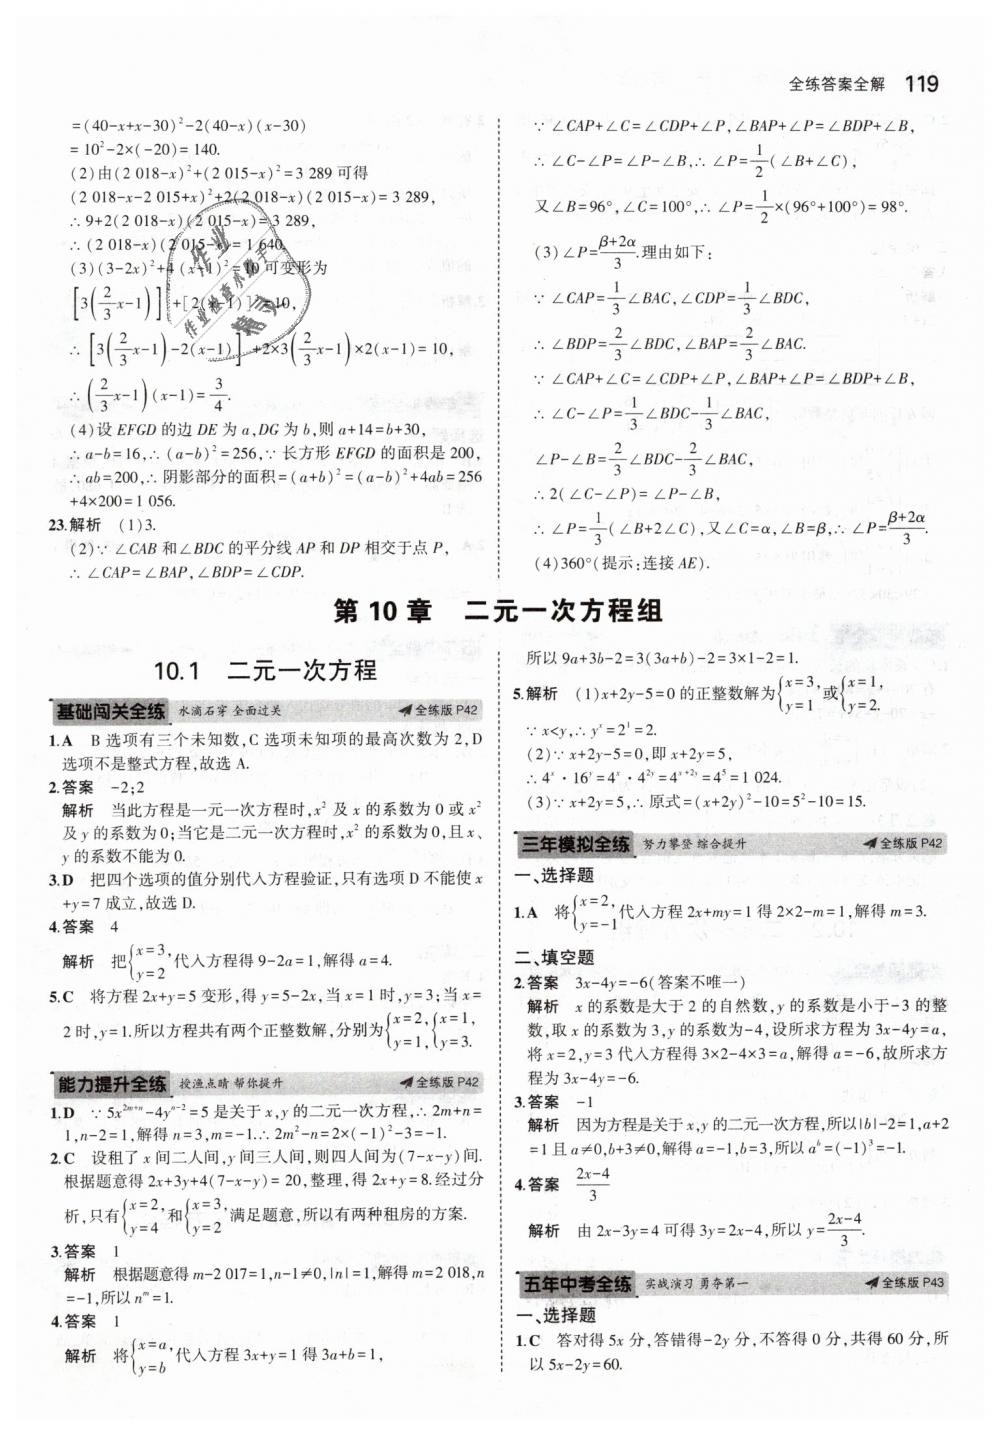 全练答案全解 119
=(40-x+x-30)²-2(40-x)(x-30)
=10²-2×(-20)=140.
(2)由(2 018-x)²+(2 015-x)²=3 289可得
(2 018-x-2 015+x)²+2(2 018-x)(2 015-x)=3 289,
∴9+2(2 018-x)(2 015-x)=3 289,
∴(2 018-x)(2 015-x)=1 640.
(3)(3-2x)²+4(x-1)²=10可变形为
[3(2/3x-1)]²+[2(x-1)]²=10,
∴[3(2/3x-1)-2(x-1)]²+2×3(2/3x-1)×2(x-1)=10,
∴(2/3x-1)(x-1)=3/4.
(4)设EFGD的边DE为a,DG为b,则a+14=b+30,
∴a-b=16,∴(a-b)²=256,∵长方形EFGD的面积是200,
∴ab=200,∴阴影部分的面积=(a+b)²=(a-b)²+4ab=256
+4×200=1 056.
23.解析 (1)3.
(2)∵∠CAB和∠BDC的平分线AP和DP相交于点P,
∴∠CAP=∠BAP,∠BDP=∠CDP.
∵∠CAP+∠C=∠CDP+∠P,∠BAP+∠P=∠BDP+∠B,
∴∠C-∠P=∠P-∠B,∴∠P=1/2(∠B+∠C),
又∠B=96°,∠C=100°,∴∠P=1/2×(96°+100°)=98°.
(3)∠P=(β+2α)/3.理由如下:
∵∠CAP=1/3∠BAC,∠CDP=1/3∠BDC,
∴∠BDP=2/3∠BDC,∠BAP=2/3∠BAC.
∵∠CAP+∠C=∠CDP+∠P,∠BAP+∠P=∠BDP+∠B,
∴∠C-∠P=1/3∠BDC-1/3∠BAC,
∠P-∠B=2/3∠BDC-2/3∠BAC,
∴2(∠C-∠P)=∠P-∠B,
∴∠P=1/3(∠B+2∠C),又∠C=α,∠B=β,∴∠P=(β+2α)/3.
(4)360°(提示:连接AE).
第10章 二元一次方程组
10.1 二元一次方程
基础闯关全练 水滴石穿 全面过关 全练版P42
1.A B选项有三个未知数,C选项未知项的最高次数为2,D
选项不是整式方程,故选A.
2.答案 -2;2
解析 当此方程是一元一次方程时,x²及x的系数为0或x²
及y的系数为0;当它是二元一次方程时,x²的系数为0,且x、
y的系数不能为0.
3.D 把四个选项的值分别代入方程验证,只有选项D不能使x
+y=7成立,故选D.
4.答案 4
解析 把{x=3,y=2代入方程得9-2a=1,解得a=4.
5.C 将方程2x+y=5变形,得y=5-2x,当x=1时,y=3;当x=
2时,y=1.所以方程共有两个正整数解,分别为{x=2,y=1,{x=1,y=3.
能力提升全练 授渔点睛 帮你提升 全练版P42
1.D ∵5x²ᵐ⁺ⁿ-4yⁿ⁻²=5是关于x,y的二元一次方程,∴2m+n=
1,n-2=1,解得n=3,m=-1.∴2m²-n=2×(-1)²-3=-1.
2.C 设租了x间二人间,y间三人间,则四人间为(7-x-y)间.
根据题意得2x+3y+4(7-x-y)=20,整理,得2x+y=8.经过分
析,只有{x=2,y=4和{x=3,y=2满足题意,所以有两种租房的方案.
3.答案 1
解析 根据题意得m-2 017=1,n-1≠0,|n|=1,解得m=2 018,n
=-1,所以nᵐ=1.
4.答案 1
解析 将{x=a,y=b代入方程3x+y=1得3a+b=1,
所以9a+3b-2=3(3a+b)-2=3×1-2=1.
5.解析 (1)x+2y-5=0的正整数解为{x=3,y=1或{x=1,y=2.
∵x<y,∴yˣ=2¹=2.
(2)∵x+2y-5=0,即x+2y=5,
∴4ˣ·16ʸ=4ˣ·4²ʸ=4ˣ⁺²ʸ=4⁵=1 024.
(3)∵x+2y=5,∴原式=(x+2y)²-10=5²-10=15.
三年模拟全练 努力攀登 综合提升 全练版P42
一、选择题
1.A 将{x=2,y=-1代入方程2x+my=1得2×2-m=1,解得m=3.
二、填空题
2.答案 3x-4y=-6(答案不唯一)
解析 x的系数是大于2的自然数,y的系数是小于-3的整
数,取x的系数为3,y的系数为-4,设所求方程为3x-4y=a,
将x=2,y=3代入方程得3×2-4×3=a,解得a=-6,故所求方
程为3x-4y=-6.
3.答案 -1
解析 因为方程是关于x,y的二元一次方程,所以|b|-2=1,a+2
=1且a≠0,b+3≠0,解得a=-1,b=3,所以aᵇ=(-1)³=-1.
4.答案 (2x-4)/3
解析 由2x-3y=4可得3y=2x-4,所以y=(2x-4)/3.
五年中考全练 实战演习 勇夺第一 全练版P43
一、选择题
1.C 答对得5x分,答错得-2y分,不答得0分,共得60分,所
以5x-2y=60.
作业
作业检查小助手
精灵